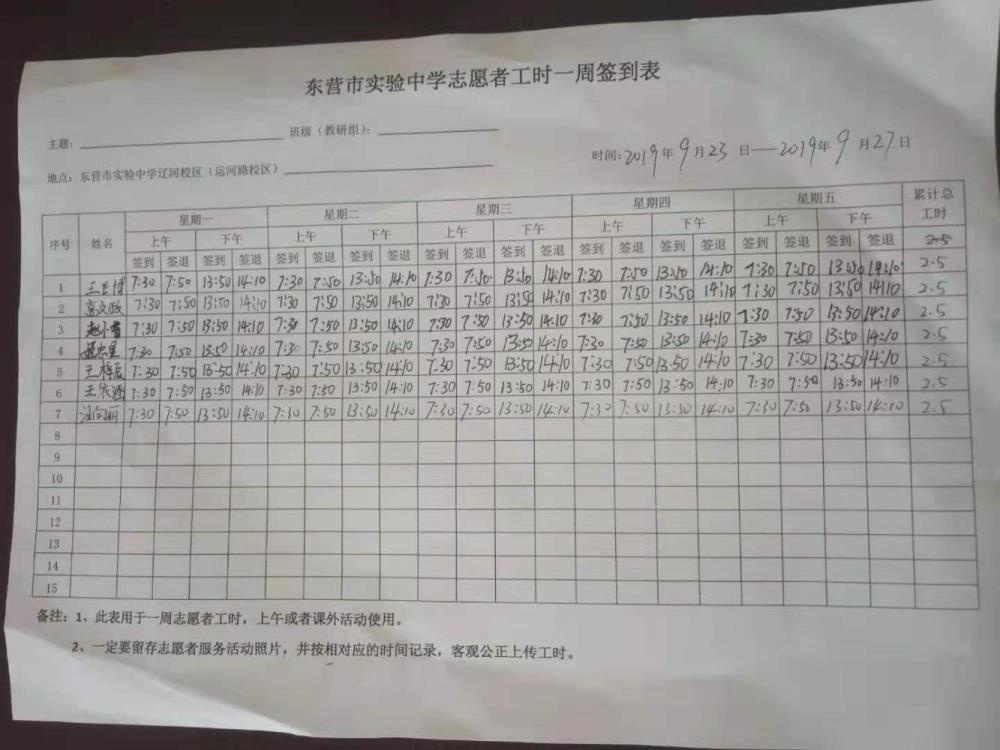 东营市实验中学志愿者工时一周签到表
主题： 班级（教研组）：
地点：东营市实验中学辽河校区（运河路校区） 时间：2019年9月23日—2019年9月27日
序号 姓名 星期一 星期二 星期三 星期四 星期五 累计总工时
上午 下午 上午 下午 上午 下午 上午 下午 上午 下午
签到 签退 签到 签退 签到 签退 签到 签退 签到 签退 签到 签退 签到 签退 签到 签退 签到 签退 签到 签退 2.5
1 7:30 7:50 13:50 14:10 7:30 7:50 13:50 14:10 7:30 7:50 13:50 14:10 7:30 7:50 13:50 14:10 7:30 7:50 13:50 14:10 2.5
2 7:30 7:50 13:50 14:10 7:30 7:50 13:50 14:10 7:30 7:50 13:50 14:10 7:30 7:50 13:50 14:10 7:30 7:50 13:50 14:10 2.5
3 7:30 7:50 13:50 14:10 7:30 7:50 13:50 14:10 7:30 7:50 13:50 14:10 7:30 7:50 13:50 14:10 7:30 7:50 13:50 14:10 2.5
4 7:30 7:50 13:50 14:10 7:30 7:50 13:50 14:10 7:30 7:50 13:50 14:10 7:30 7:50 13:50 14:10 7:30 7:50 13:50 14:10 2.5
5 7:30 7:50 13:50 14:10 7:30 7:50 13:50 14:10 7:30 7:50 13:50 14:10 7:30 7:50 13:50 14:10 7:30 7:50 13:50 14:10 2.5
6 7:30 7:50 13:50 14:10 7:30 7:50 13:50 14:10 7:30 7:50 13:50 14:10 7:30 7:50 13:50 14:10 7:30 7:50 13:50 14:10 2.5
7 7:30 7:50 13:50 14:10 7:30 7:50 13:50 14:10 7:30 7:50 13:50 14:10 7:30 7:50 13:50 14:10 7:30 7:50 13:50 14:10 2.5
8
9
10
11
12
13
14
15
备注：1、此表用于一周志愿者工时，上午或者课外活动使用。
2、一定要留存志愿者服务活动照片，并按相对应的时间记录，客观公正上传工时。